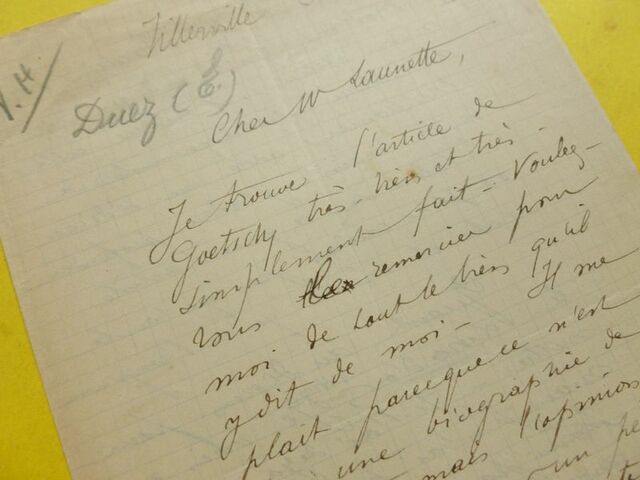 Villerville
V. H.
Duez (E.)
Cher Mr Launette,
Je trouve l'article de
Goetschy très bien et très
simplement fait - Voulez-
vous remercier pour
moi de tout le bien qu'il
y dit de moi - Il me
plait parceque ce n'est
une biographie de
mais l'opinion
un pe